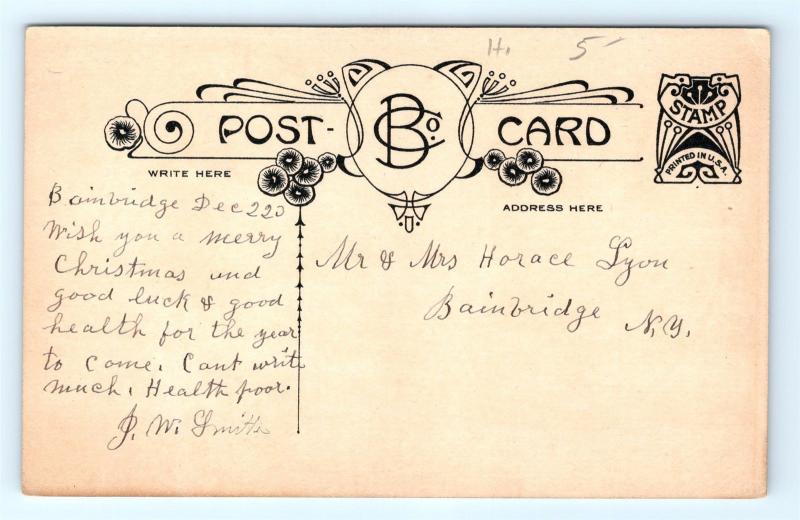 H. 5
POST- BCo. CARD
STAMP
PRINTED IN U.S.A.
WRITE HERE
ADDRESS HERE
Bainbridge Dec 22D
Wish you a merry
Christmas and
good luck & good
health for the year
to come. Cant write
much. Health poor.
J. W. Smith
Mr & Mrs Horace Lyon
Bainbridge
N.Y.